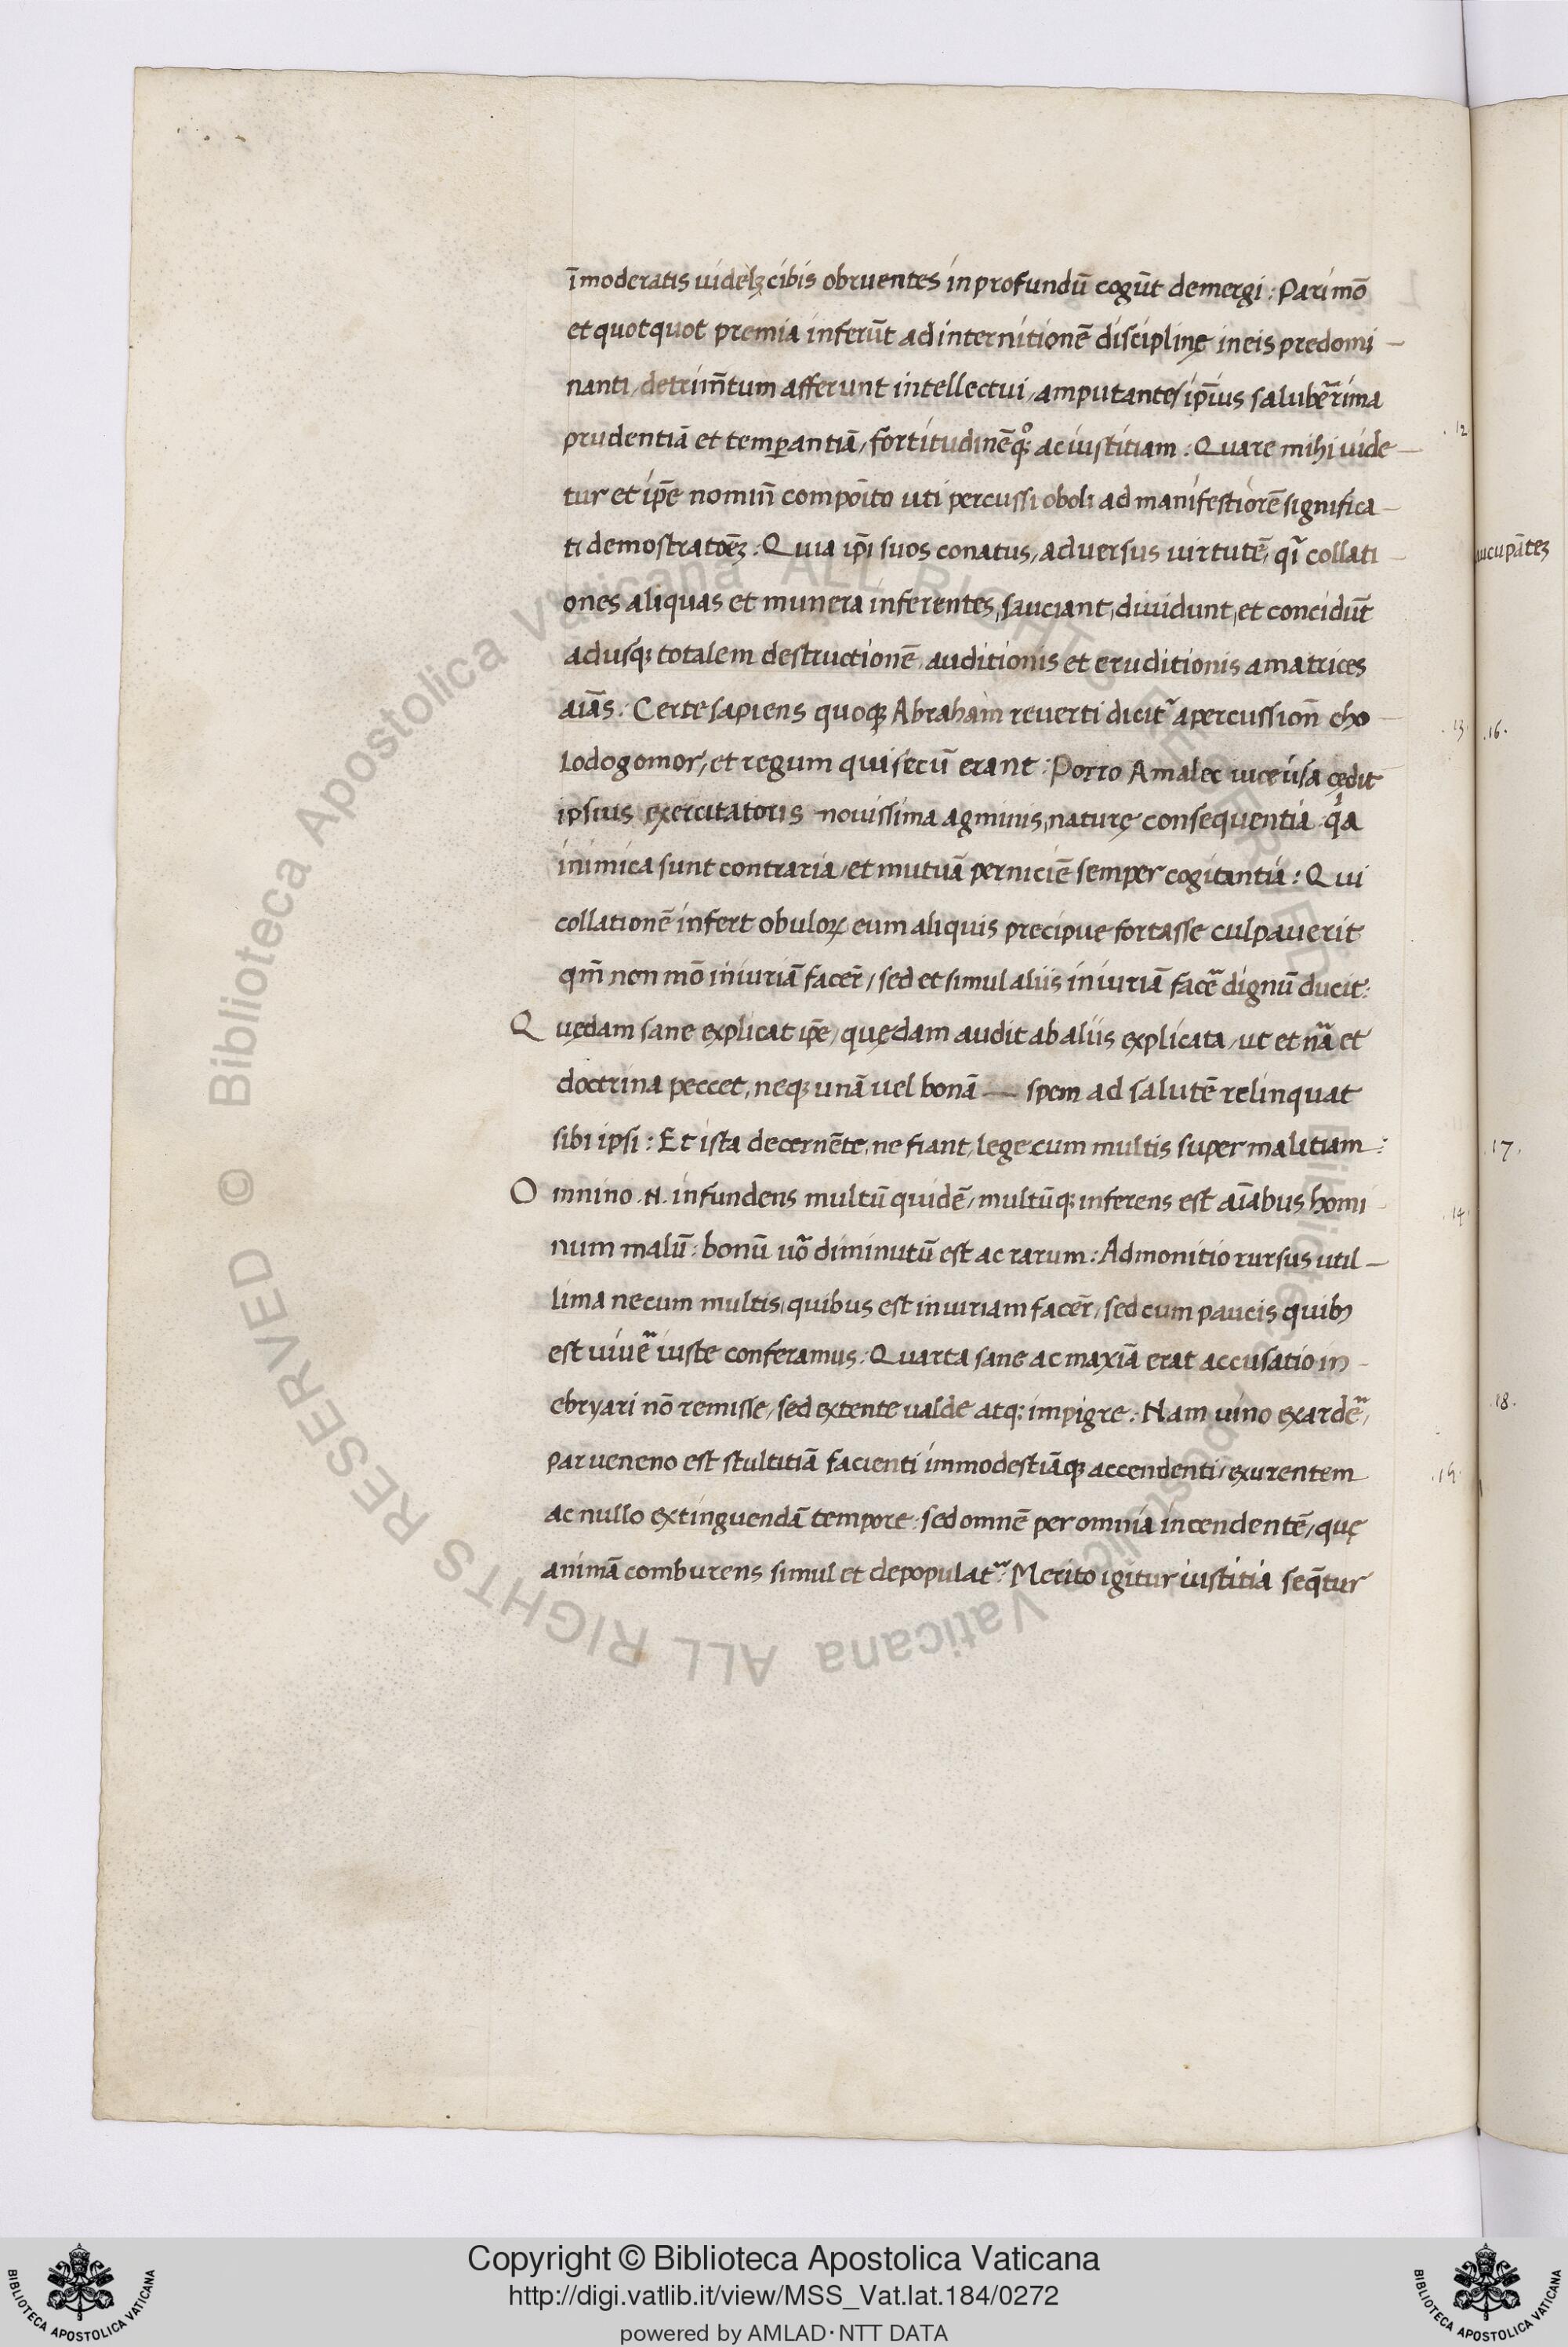 īmoderatis uidelꝫ cibis obruentes in profundū cogūt demergi : Pari mō
et quotquot premia inferūt ad internitionē disciplinę in eis predomi —
nanti, detrim̄tum afferunt intellectui, amputantes ip̄ius saluber̄rima
prudentiā et temꝑantiā, fortitudinēqꝫ ac iustitiam : Quare mihi uide —
tur et ip̄e nomiñ compoīto uti percussi oboli ad manifestiorē significa —
ti demostratoēꝫ : Quia ip̄i suos conatus, aduersus uirtutē, qī collati —
ones aliquas et munera inferentes, sauciant, diuidunt, et concidūt
adusqꝫ totalem destructionē auditionis et eruditionis amatrices
aīas : Certe sapiens quoqꝫ Abraham reuerti dicit᷑ a percussioñ cho —
lodogomor, et regum qui secū erant : Porro Amalec uice uersa cędit
ipsius exercitatoris nouissima agminis, naturę consequentia qͥa
inimica sunt contraria, et mutuā perniciē semper cogitantia : Qui
collationē infert oboloꝝ eum aliquis precipue fortasse culpauerit
qm̄ non mō iniuriā facer̄, sed et simul aliis iniuriā facer̄ dignū ducit :
Quędam sane explicat ip̄e, quędam audit ab aliis explicata, ut et nā et
doctrina peccet, neqꝫ unā uel bonā — spem ad salutē relinquat
sibi ipsi : Et ista decernēte, ne fiant, lege cum multis super malitiam :
Omnino .N. infundens multū quidē, multūqꝫ inferens est aīabus homi —
num malū : bonū uō diminutū est ac rarum : Admonitio rursus util —
lima ne cum multis, quibus est iniuriam facer̄, sed cum paucis quibꝫ
est uiuer̄ iuste conferamus : Quarta sane ac maxīa erat accusatio in —
ebryari nō remisse, sed extente ualde atqꝫ impigre : Nam uino exardēr,
par ueneno est stultitiā facienti immodestiāqꝫ accendenti, exurentem
ac nullo extinguendā tempore : sed omnē per omnia incendentē, quę
animā comburens simul et depopulat᷑ : Merito igitur iustitia seq̄tur
12
13
14
15
ucupātēꝫ
.16.
.17.
.18.
Copyright © Biblioteca Apostolica Vaticana
http://digi.vatlib.it/view/MSS_Vat.lat.184/0272
powered by AMLAD·NTT DATA
BIBLIOTECA APOSTOLICA VATICANA
BIBLIOTECA APOSTOLICA VATICANA
© Biblioteca Apostolica Vaticana ALL RIGHTS RESERVED
© Biblioteca Apostolica Vaticana ALL RIGHTS RESERVED